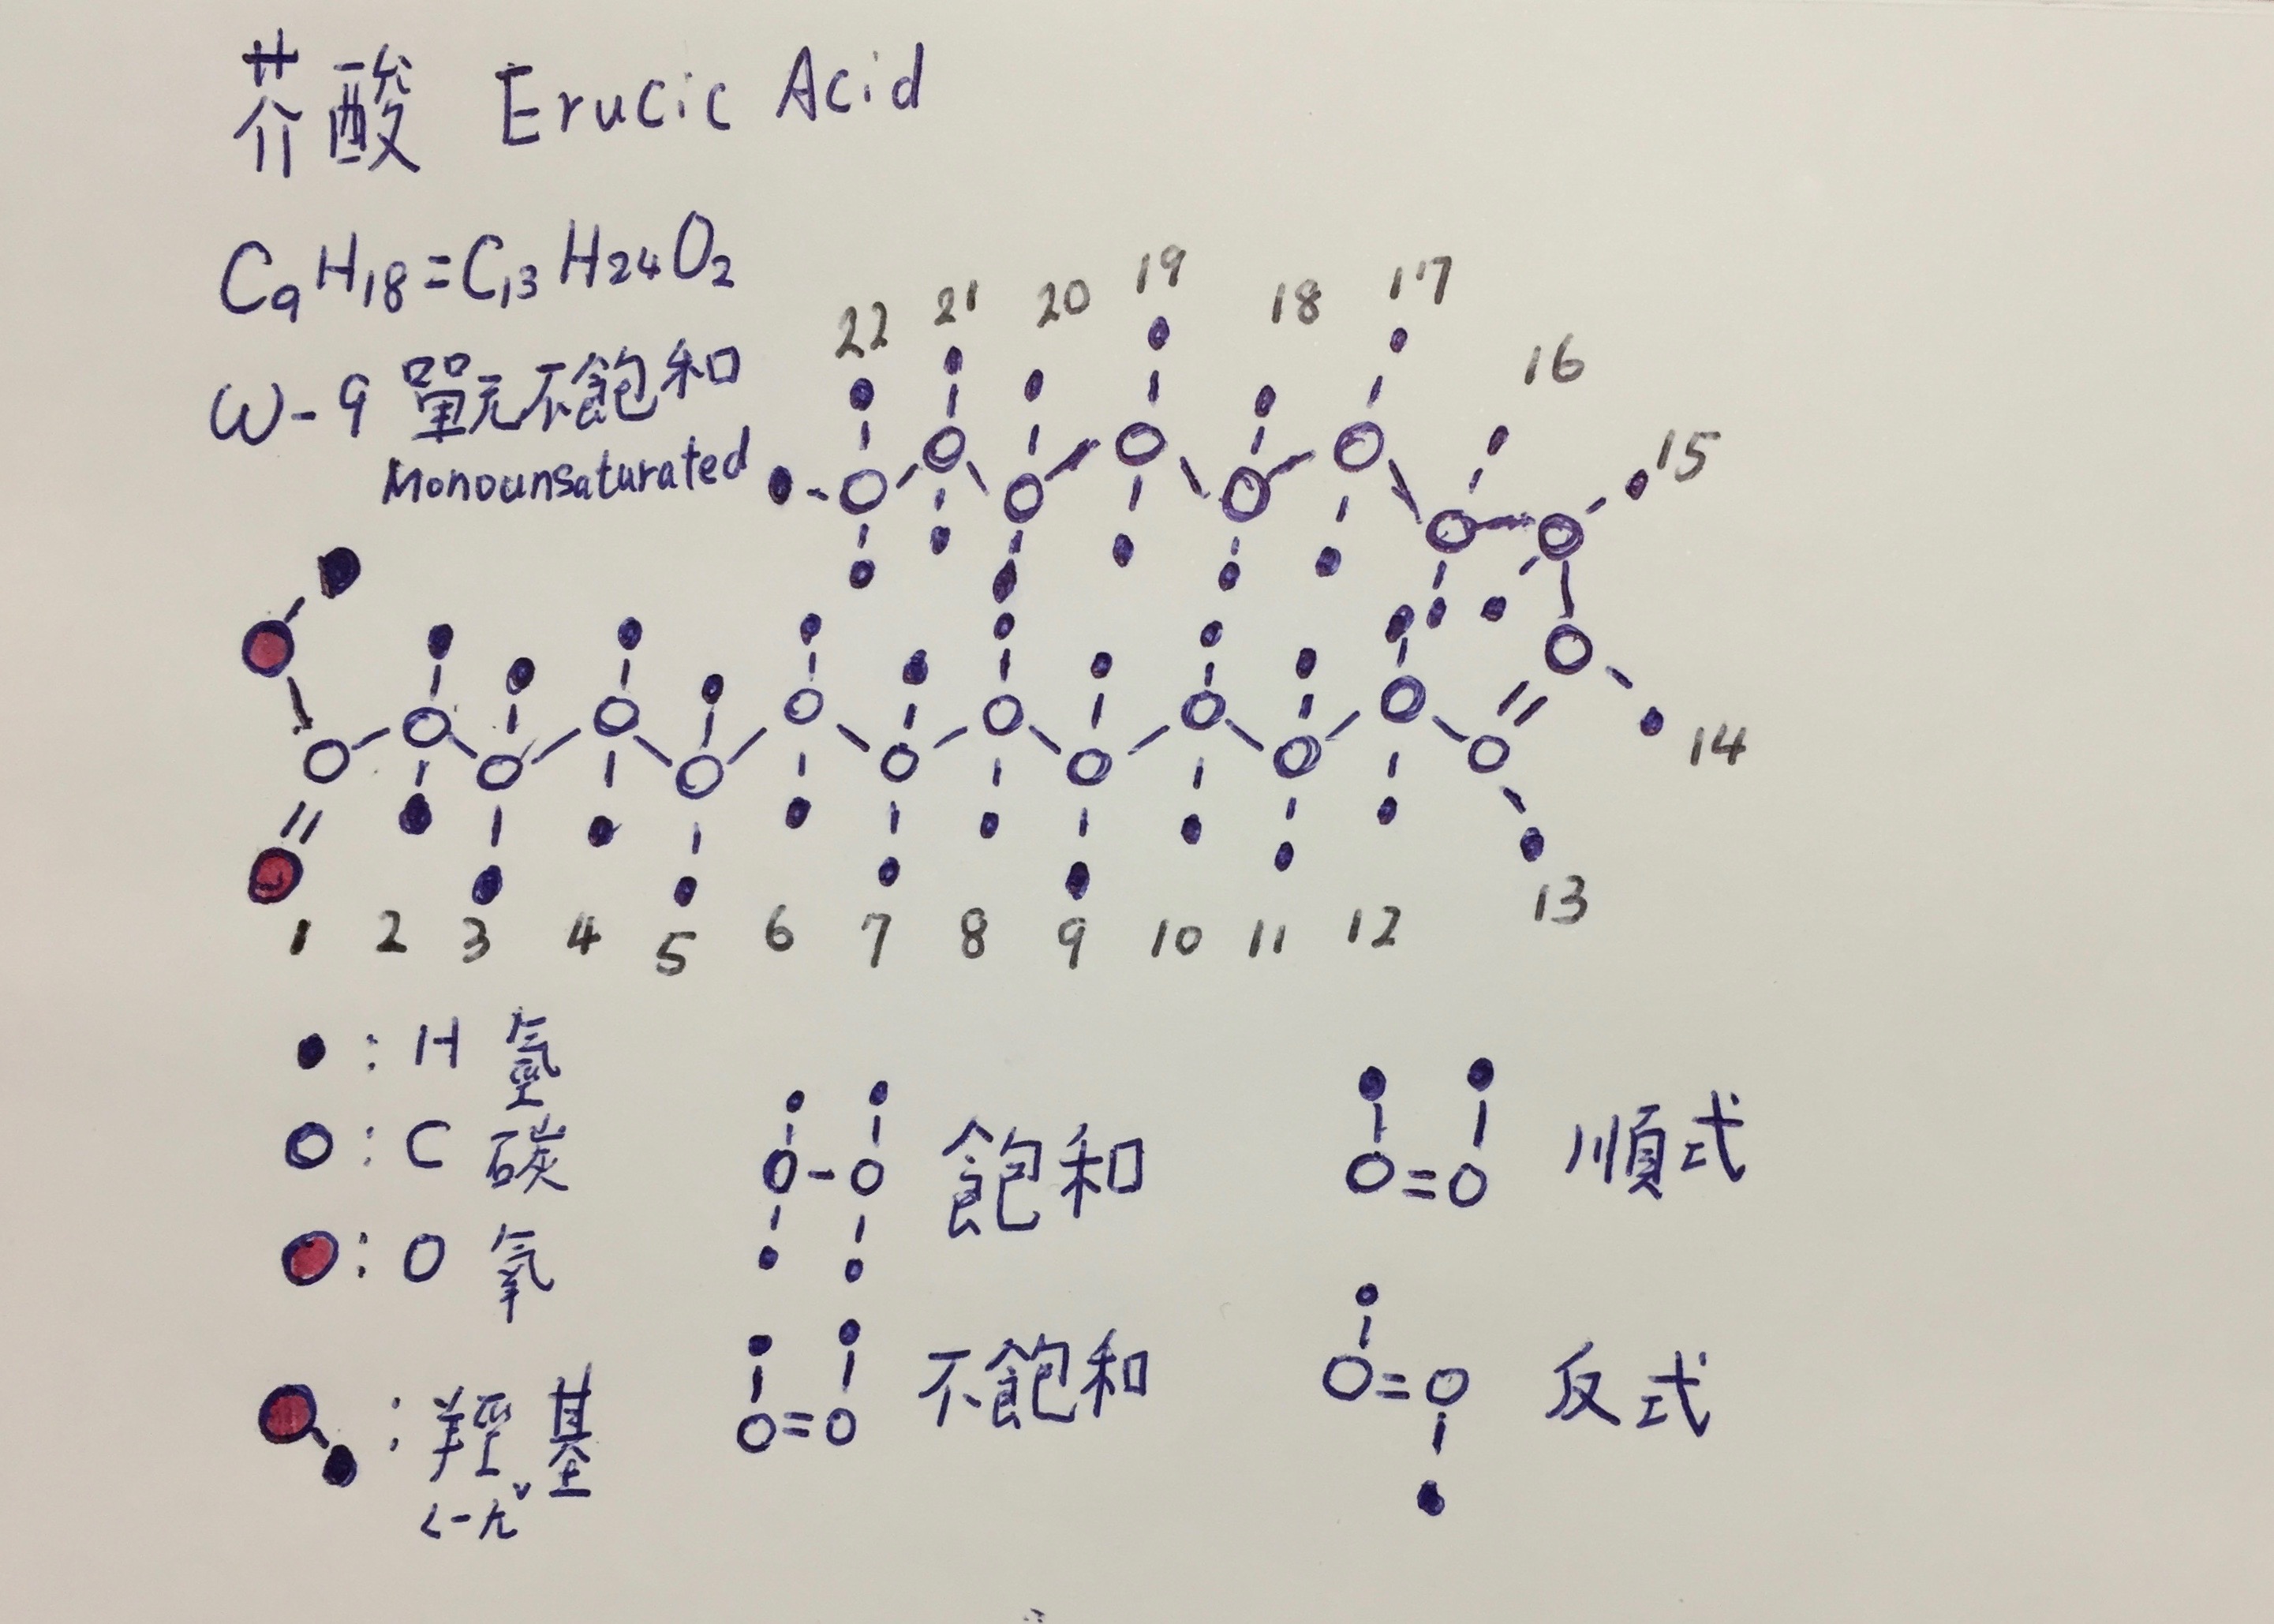 芥酸 Erucic Acid
C9H18=C13H24O2
ω-9 單元不飽和
Monounsaturated
22 21 20 19 18 17 16 15
14
13
1 2 3 4 5 6 7 8 9 10 11 12
: H 氫
: C 碳
: O 氧
: 羥基
ㄑㄧㄤˇ
飽和
不飽和
順式
反式